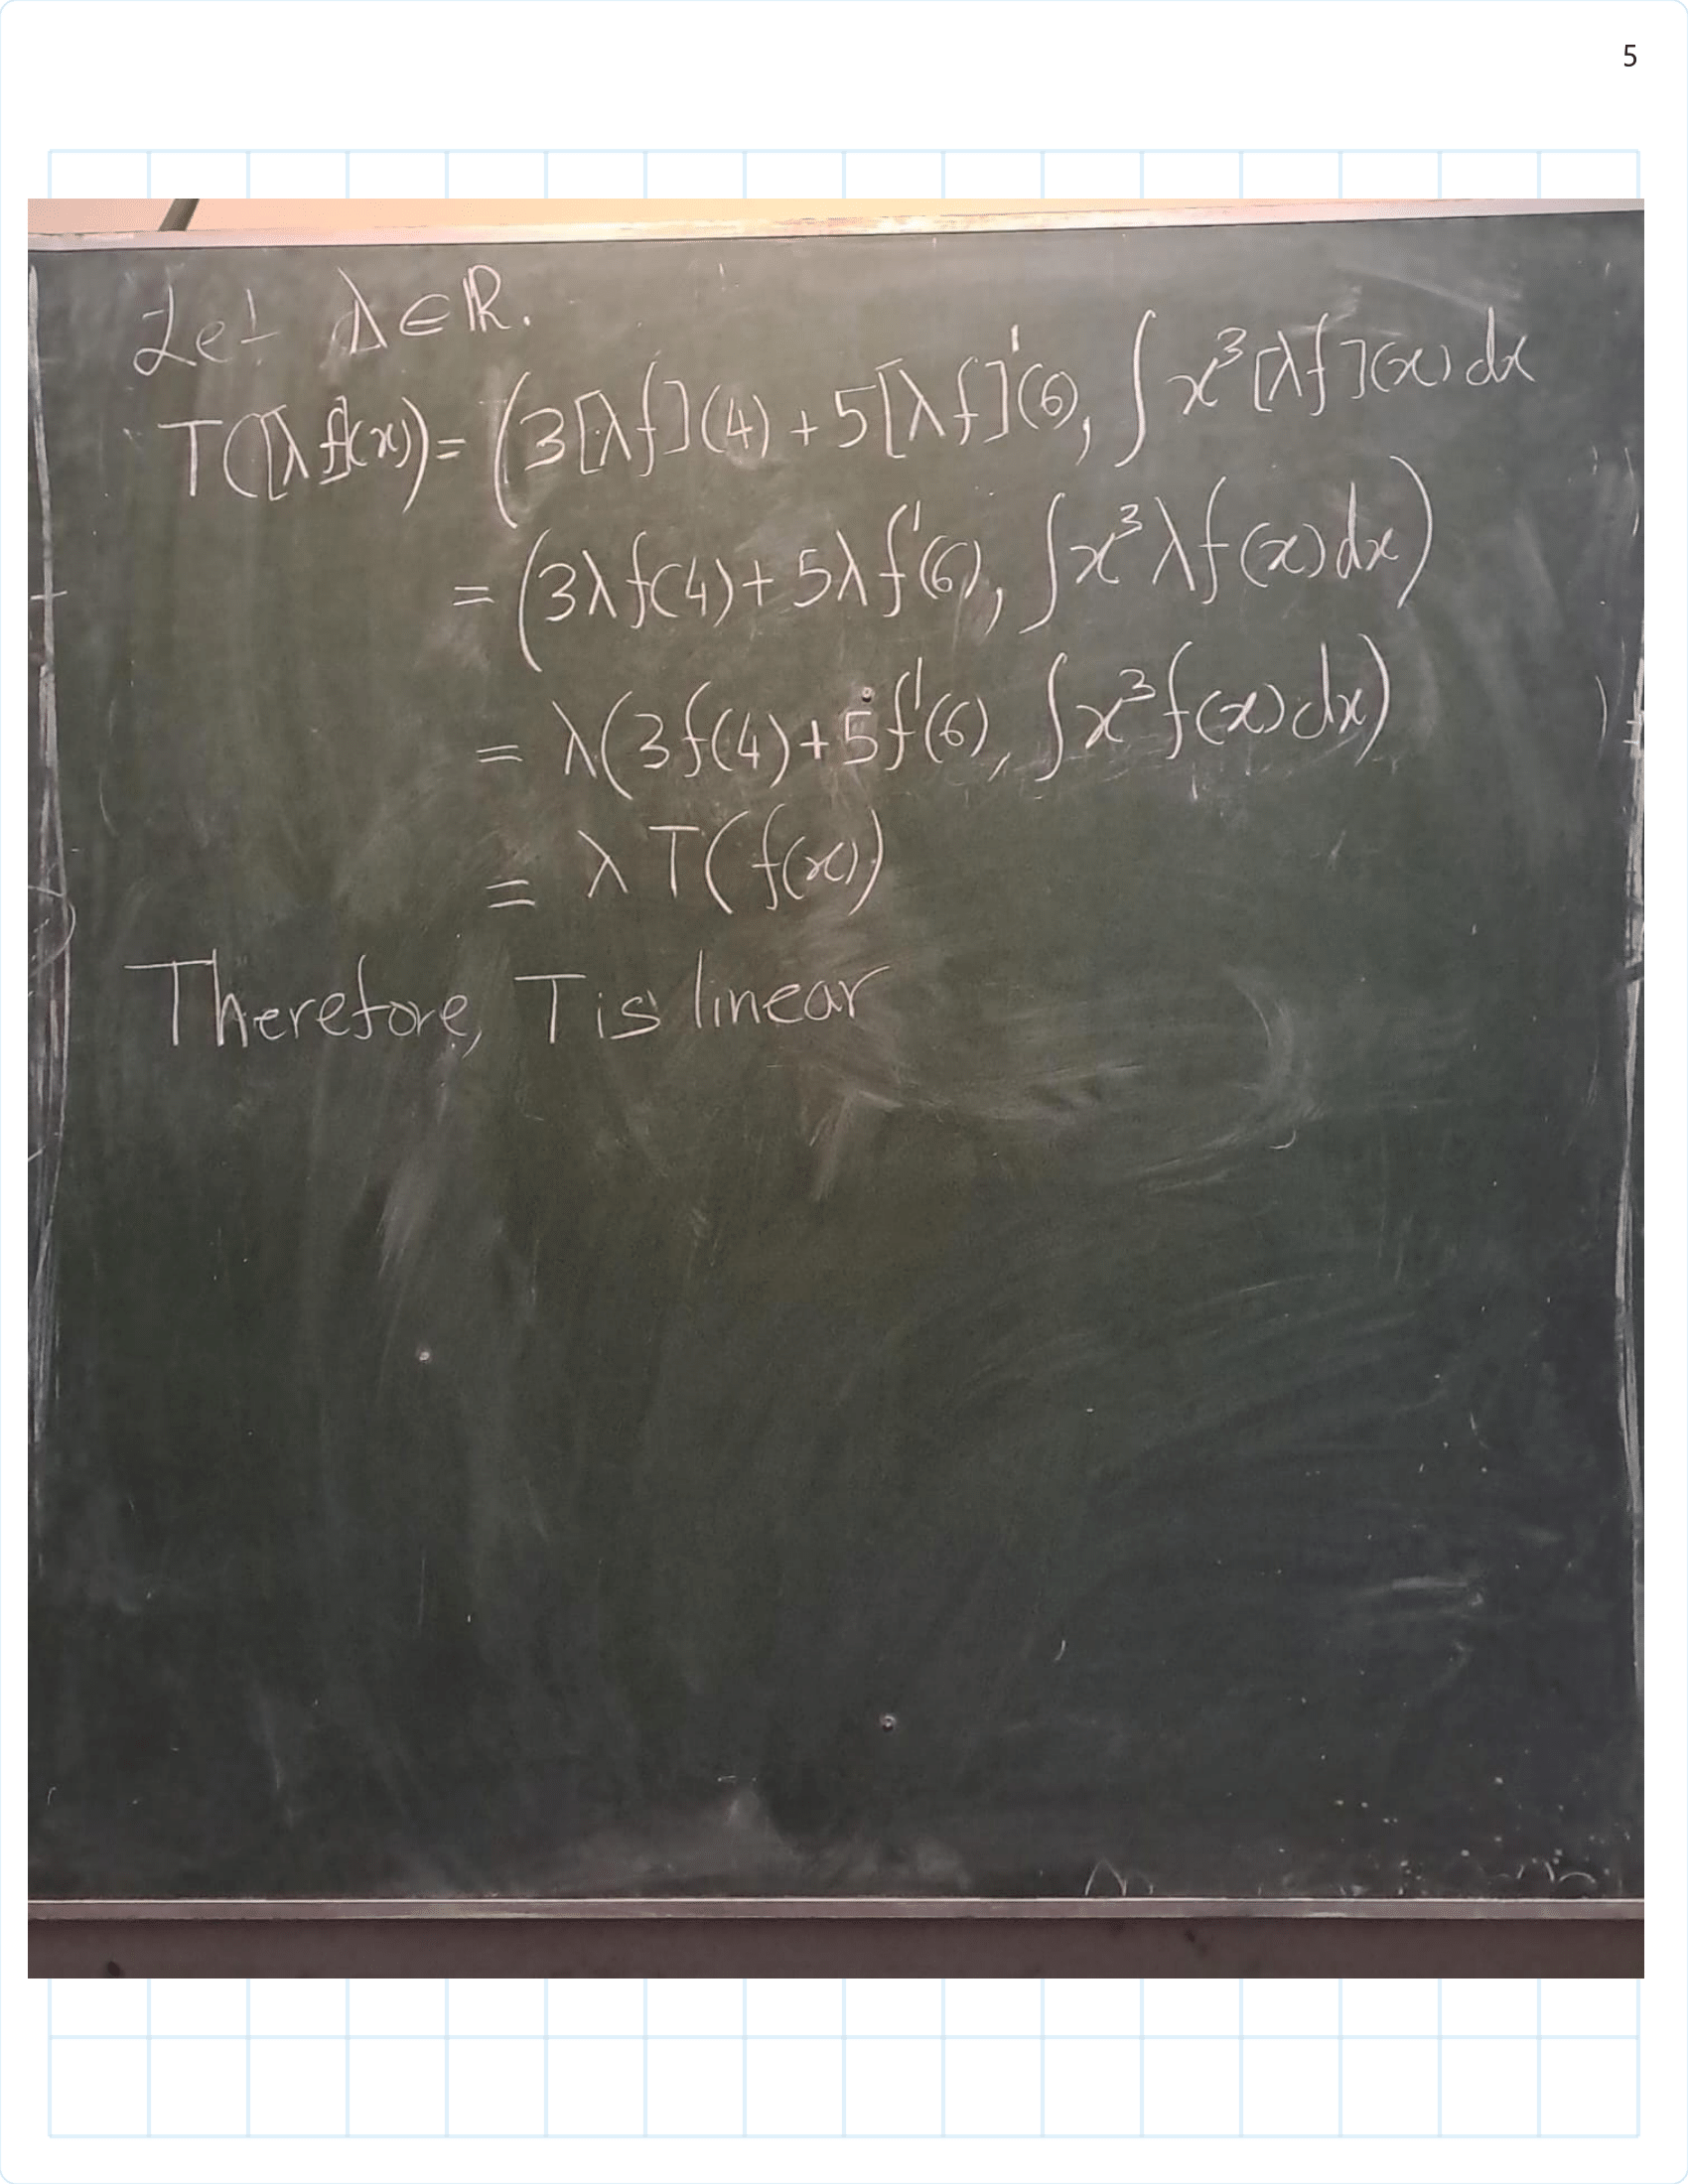 5
Let λ∈ℝ.
T([λf](x)) = (3[λf](4) + 5[λf]'(6), ∫x³[λf](x)dx
= (3λf(4) + 5λf'(6), ∫x³λf(x)dx)
= λ(3f(4) + 5f'(6), ∫x³f(x)dx)
= λT(f(x))
Therefore, T is linear